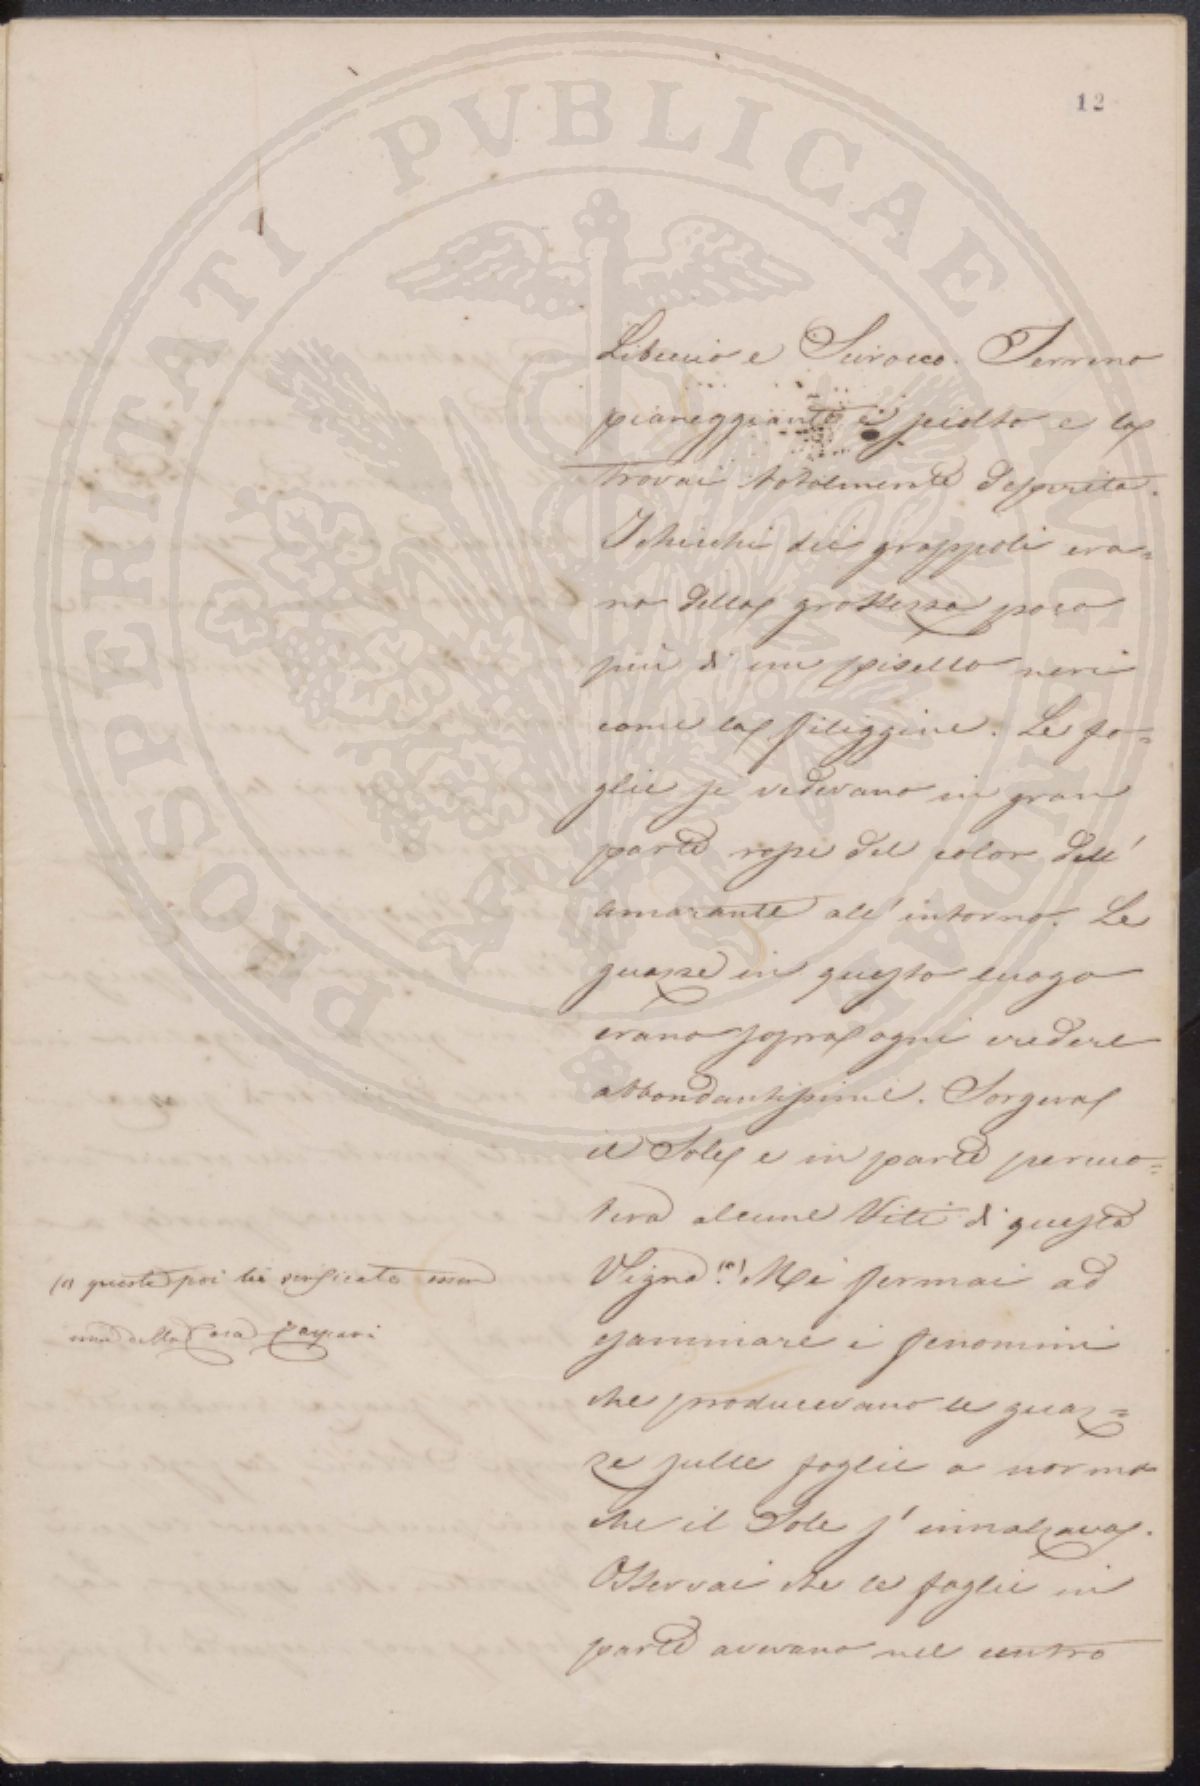 12
PROSPERITATI PVBLICAE AVGENDAE
Libeccio e Scirocco. Terreno
pianeggiante e sciolto e la
trovai totalmente deperita.
I chicchi dei grappoli era=
no della grossezza poco
più di un pisello neri
come la filiggine. Le fo=
glie si vedevano in gran
parte rosse del color dell'
amarante all'intorno. Le
guazze in questo luogo
erano sopra ogni credere
abbondantissime. Sorgeva
il Sole e in parte percuo=
teva alcune Viti di questa
Vigna (a). Mi fermai ad
esaminare i fenomini
che producevano le guaz=
ze sulle foglie a norma
che il Sole s'innalzava.
Osservai che le foglie in
parte avevano nel centro
(a) questa poi l'ò verificata esser
una della Casa